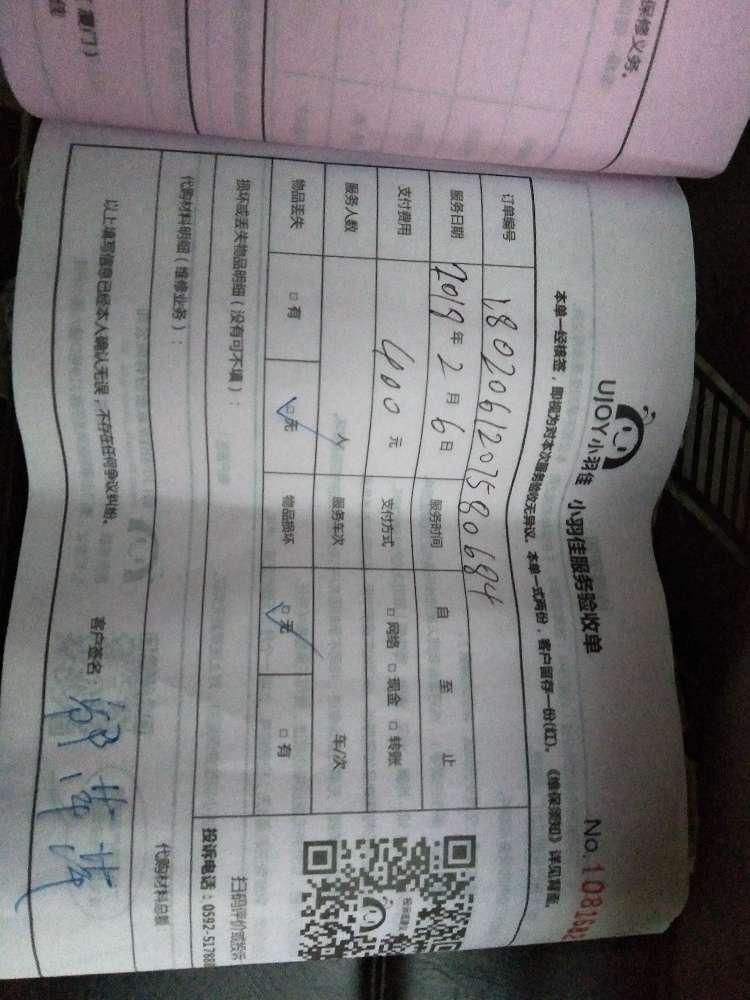 保修义务。
厦门）
UJOY小羽佳 小羽佳服务验收单
No.
本单一经接签，即视为对本次服务验收无异议。本单一式两份，客户留存一份(红)。《维保须知》详见背面。
订单编号 180206120758 0 6 8 4
服务日期 2019年2月6日 服务时间 自 至 止
支付费用 400元 支付方式 □网络 □现金 □转账
服务人数 人 服务车次 车/次
物品丢失 □有 □无 物品损坏 □无 □有
损坏或丢失物品明细（没有可不填）：
代购材料明细（维修业务）： 代购材料总额
以上填写信息已经本人确认无误，不存在任何争议纠纷。 客户签名：
扫码评价或投诉
投诉电话：0592-517888